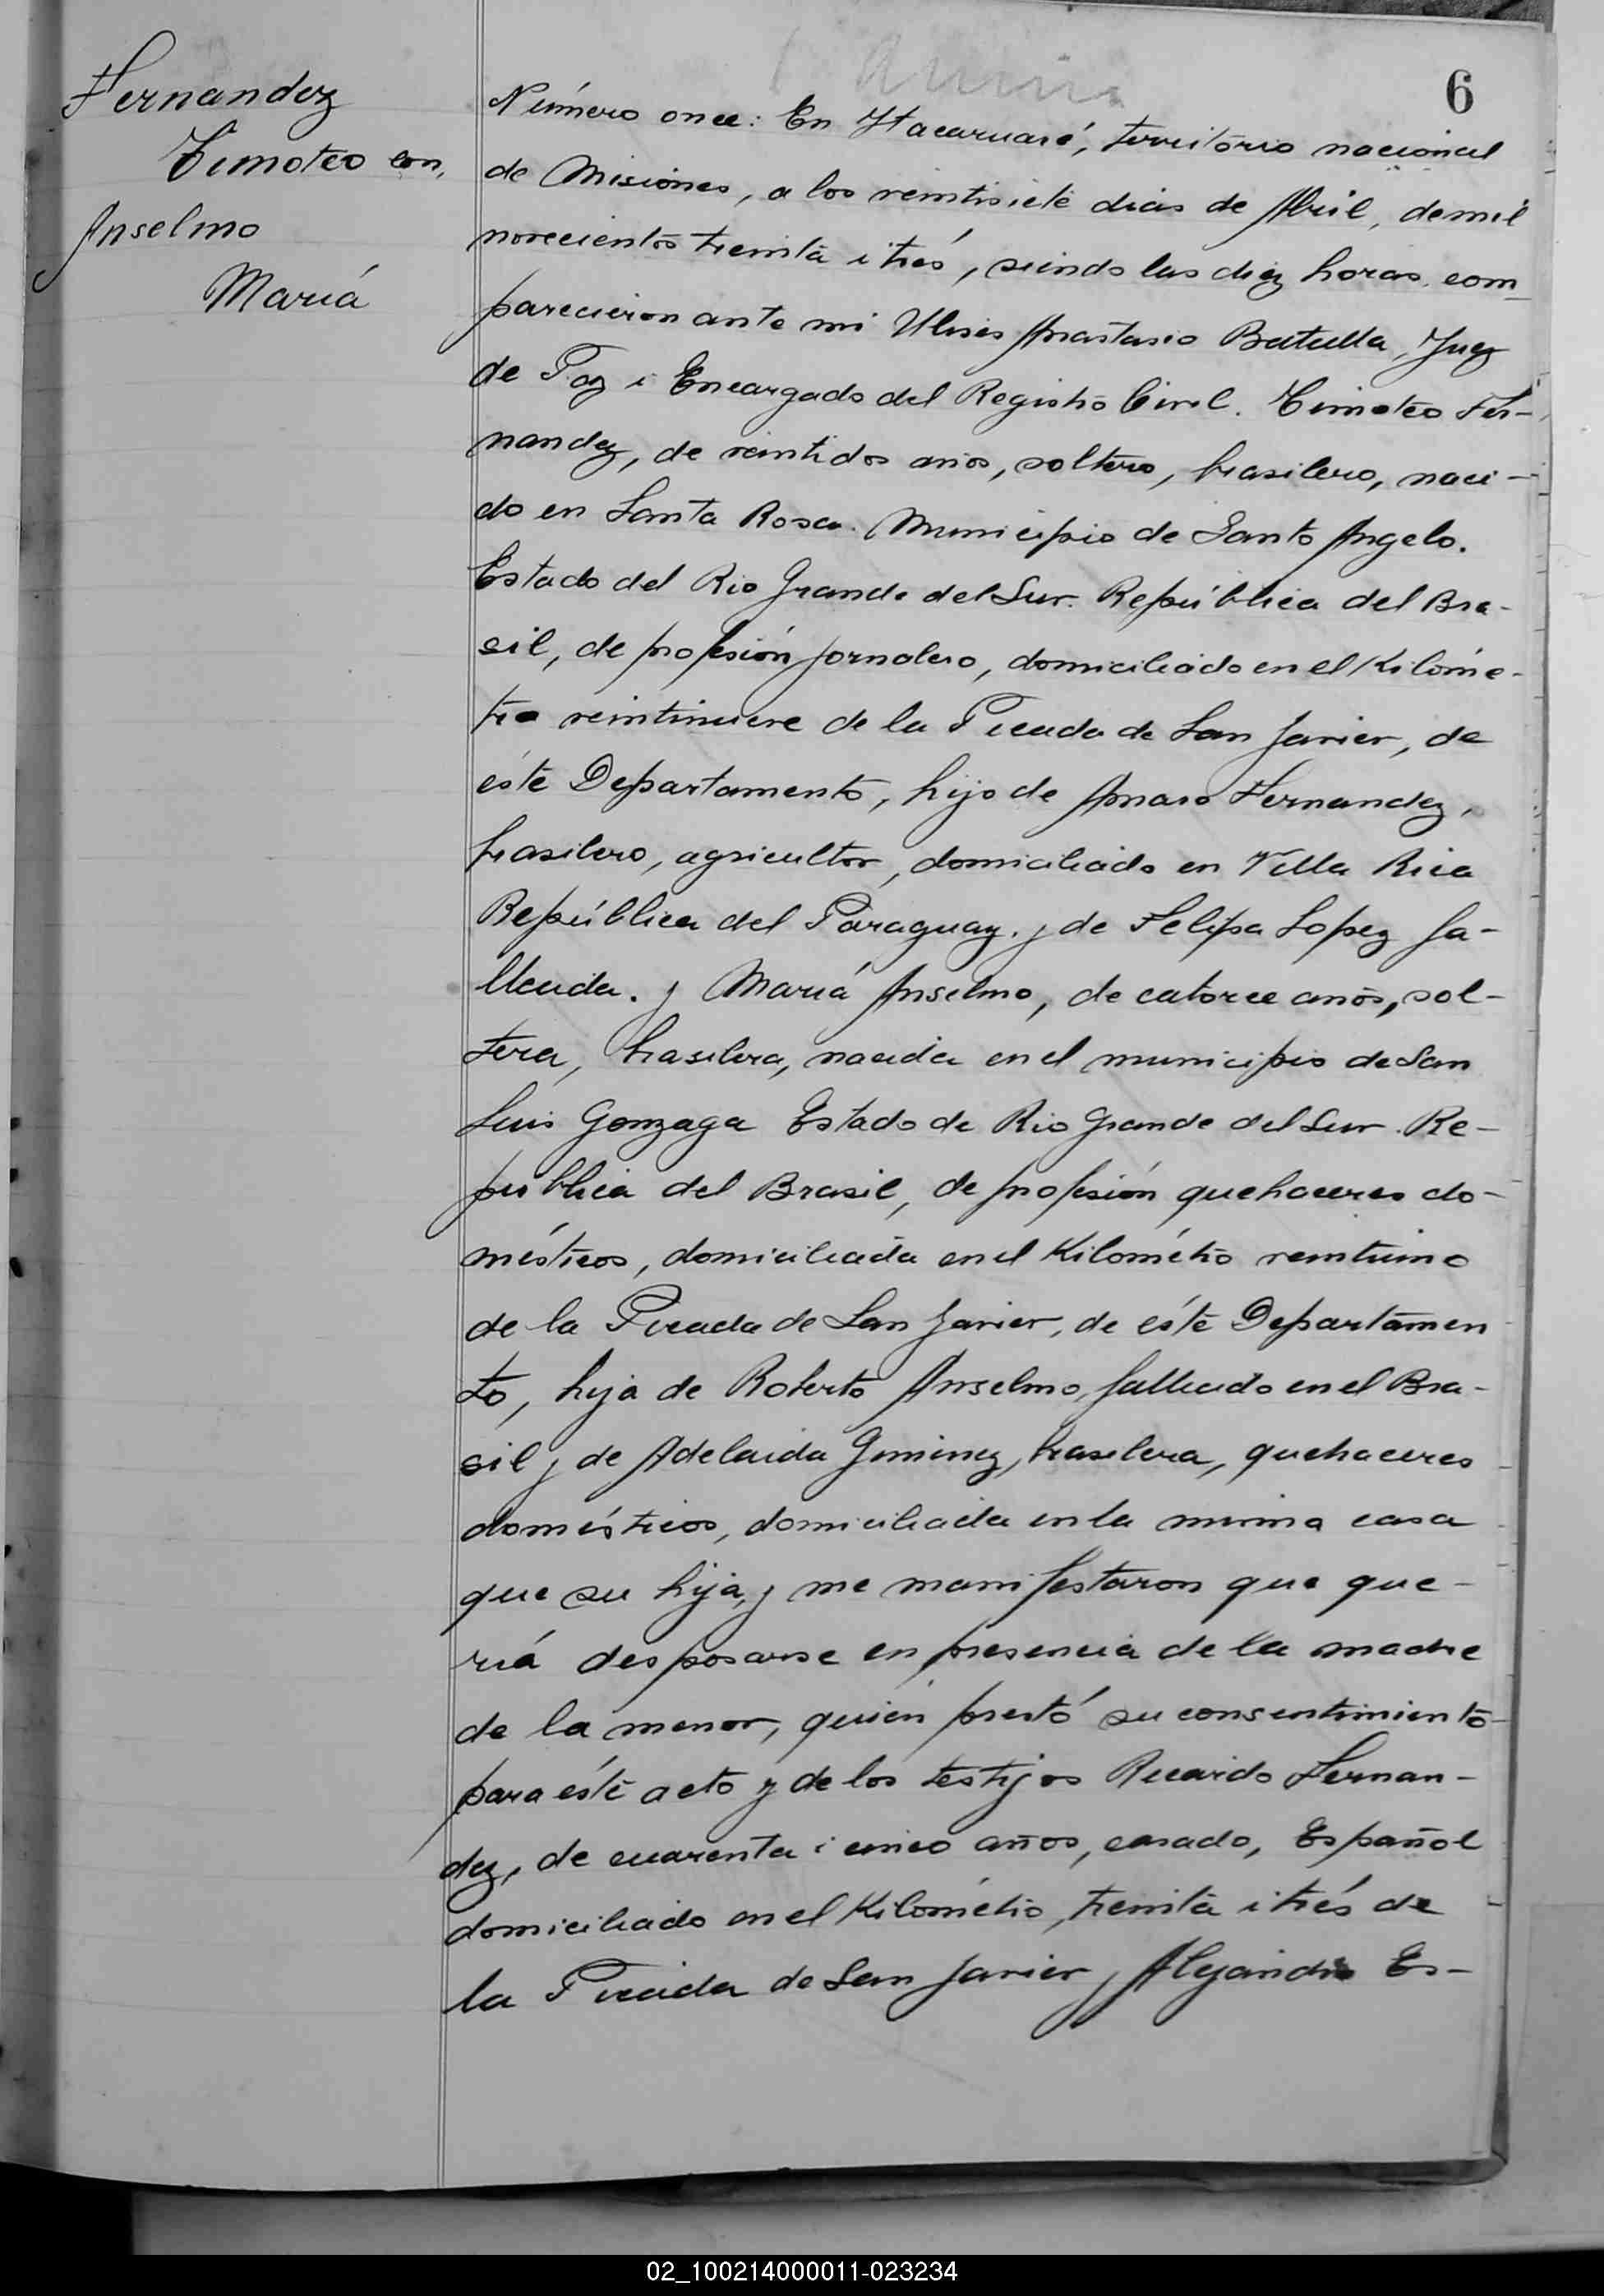 6
Fernandez
Timoteo con,
Anselmo
María
Número once: En Itacaruaré, territorio nacional
de Misiones, a los veintisiete dias de Abril, de mil
novecientos treinta i trés, siendo las diez horas, com-
parecieron ante mi Ulises Anastasio Batulla, Juez
de Paz i Encargado del Registro Civil. Timoteo Fer-
nandez, de veintidos años, soltero, brasilero, naci-
do en Santa Rosa. Municipio de Santo Angelo.
Estado del Rio Grande del Sur. República del Bra-
sil, de profesión jornalero, domiciliado en el Kilóme-
tro veintinueve de la Picada de San Javier, de
éste Departamento, hijo de Amaro Fernandez,
brasilero, agricultor, domiciliado en Villa Rica
República del Paraguay. y de Felipa Lopez fa-
llecida. y María Anselmo, de catorce años, sol-
tera, brasilera, nacida en el municipio de San
Luis Gonzaga Estado de Rio Grande del Sur. Re-
pública del Brasil, de profesión quehaceres do-
mésticos, domiciliada en el Kilómetro veintiuno
de la Picada de San Javier, de éste Departamen
to, hija de Roberto Anselmo, fallecido en el Bra-
sil y de Adelaida Giminez, brasilera, quehaceres
domésticos, domiciliada en la misma casa
que su hija, y me manifestaron que que-
riá desposarse en presencia de la madre
de la menor, quién prestó su consentimiento
para éste acto y de los testijos Ricardo Fernan-
dez, de cuarenta i cinco años, casado, Español
domiciliado en el Kilómetro, treinta i trés de
la Picada de San Javier y Alejandro Es-
02_100214000011-023234